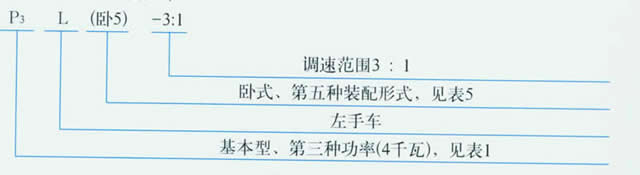 P3 L (卧5) -3:1
调速范围3 : 1
卧式、第五种装配形式，见表5
左手车
基本型、第三种功率(4千瓦)，见表1